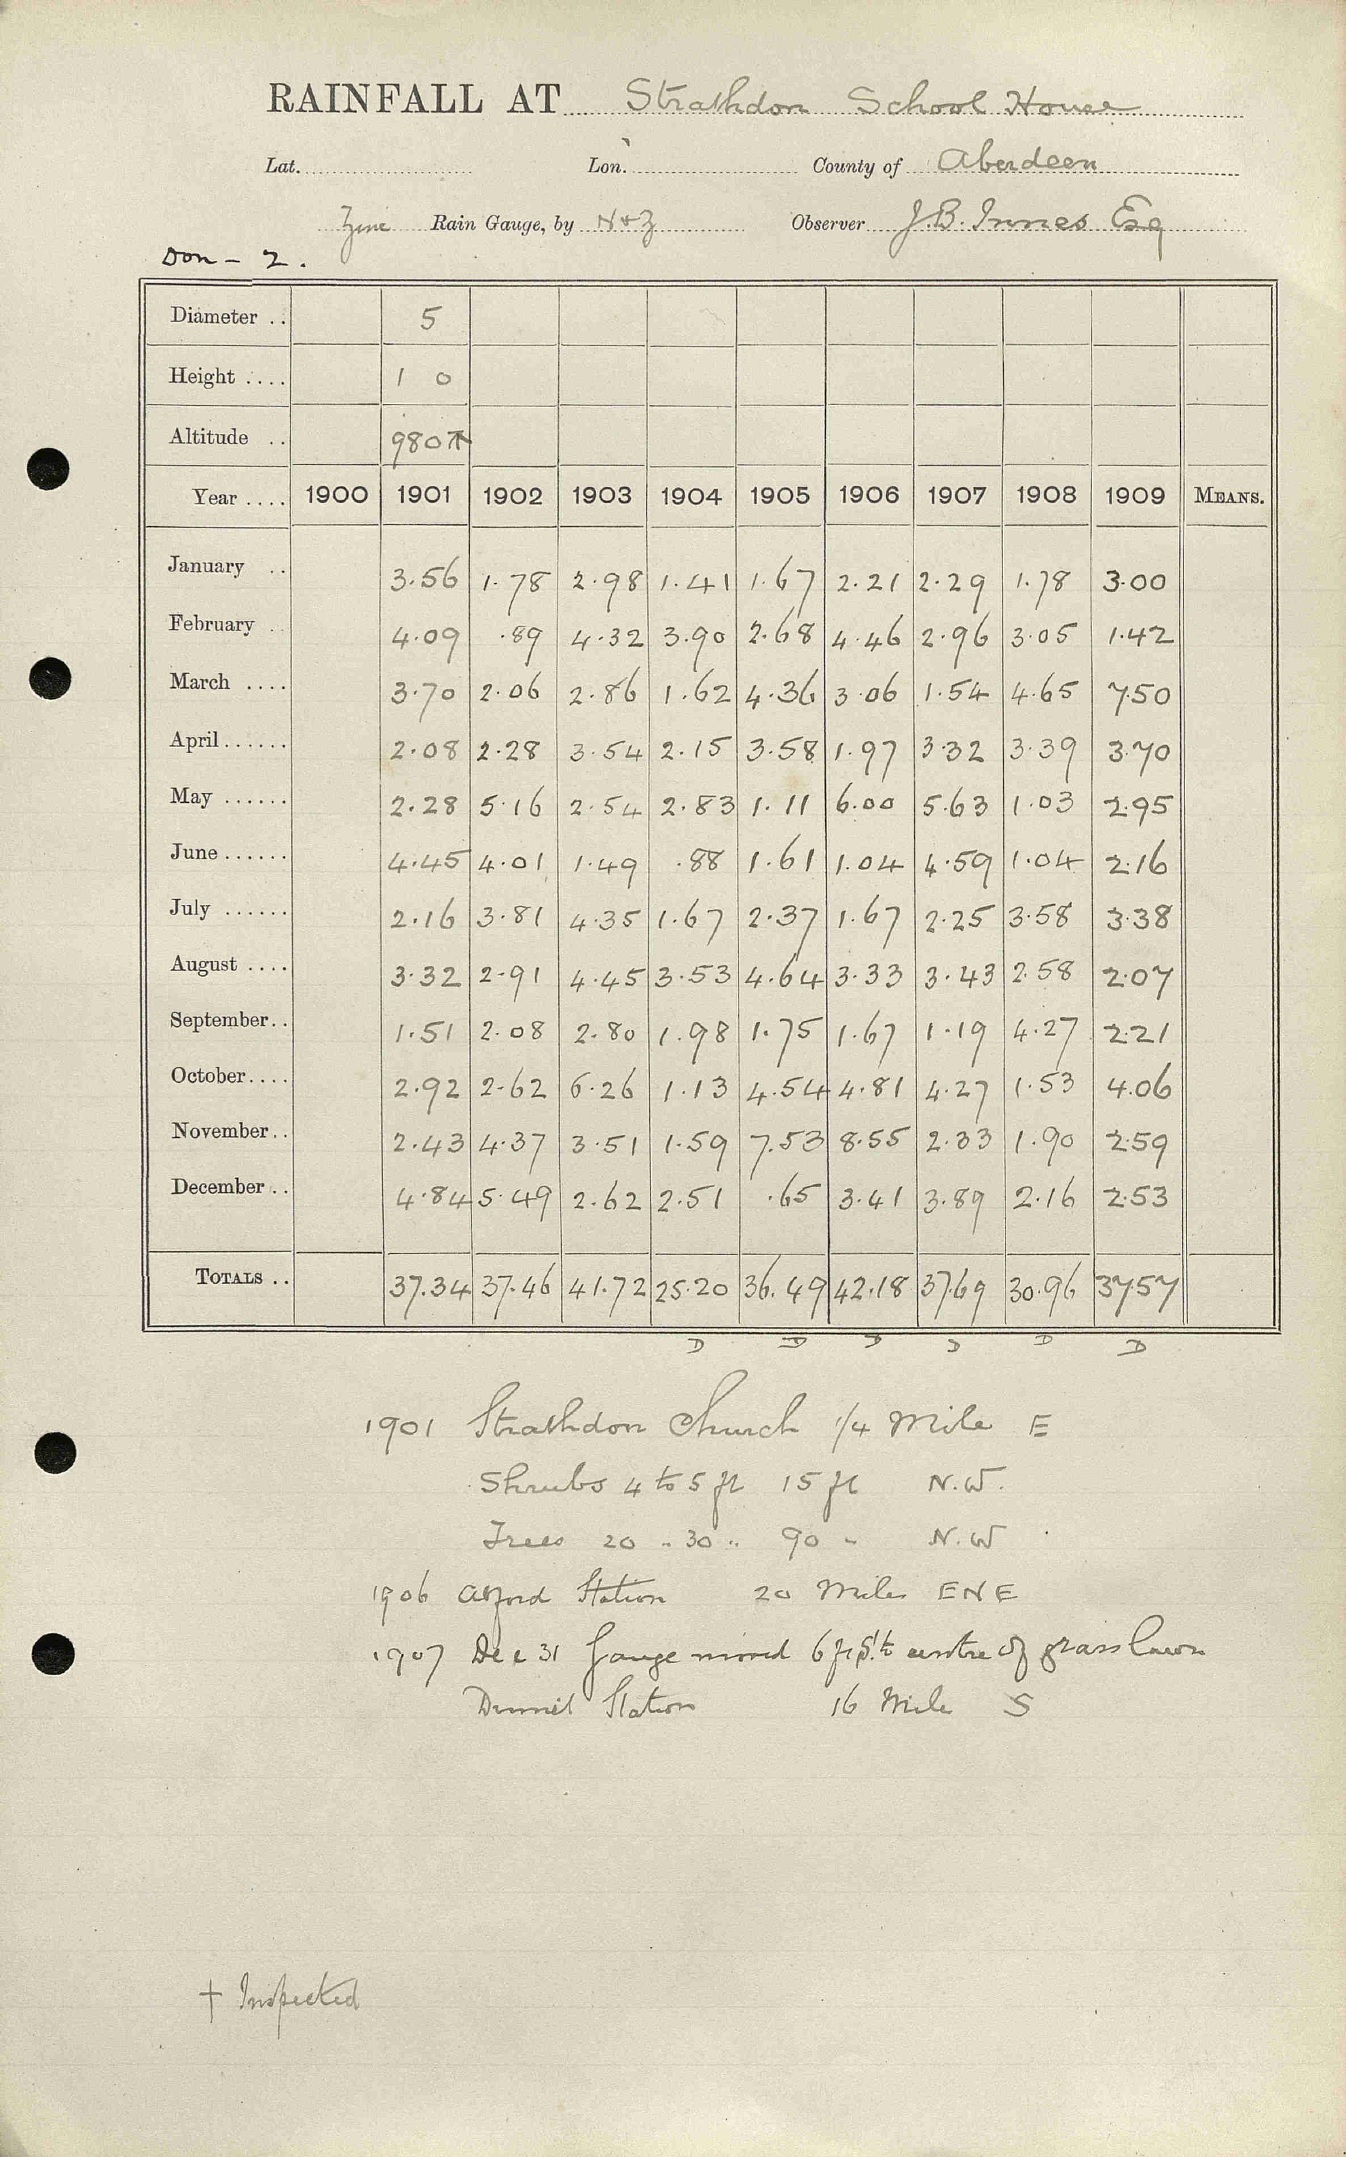 RAINFALL AT Strathdon School House
Lat. Lon. County of Aberdeen
Zinc Rain Gauge, by N & Z Observer J.B. Innes Esq
Don - 2.
Diameter .. 5
Height .... 1 0
Altitude .. 980
Year .... 1900 1901 1902 1903 1904 1905 1906 1907 1908 1909 MEANS.
January .. 3.56 1.78 2.98 1.41 1.67 2.21 2.29 1.78 3.00
February .. 4.09 .89 4.32 3.90 2.68 4.46 2.96 3.05 1.42
March .... 3.70 2.06 2.86 1.62 4.36 3.06 1.54 4.65 7.50
April ...... 2.08 2.28 3.54 2.15 3.58 1.97 3.32 3.39 3.70
May ...... 2.28 5.16 2.54 2.83 1.11 6.00 5.63 1.03 2.95
June ...... 4.45 4.01 1.49 .88 1.61 1.04 4.59 1.04 2.16
July ...... 2.16 3.81 4.35 1.67 2.37 1.67 2.25 3.58 3.38
August .... 3.32 2.91 4.45 3.53 4.64 3.33 3.43 2.58 2.07
September .. 1.51 2.08 2.80 1.98 1.75 1.67 1.19 4.27 2.21
October .... 2.92 2.62 6.26 1.13 4.54 4.81 4.27 1.53 4.06
November .. 2.43 4.37 3.51 1.59 7.53 8.55 2.33 1.90 2.59
December .. 4.84 5.49 2.62 2.51 .65 3.41 3.89 2.16 2.53
TOTALS .. 37.34 37.46 41.72 25.20 36.49 42.18 37.69 30.96 37.57
D D D D D D
1901 Strathdon Church 1/4 Mile E
Shrubs 4 to 5 ft 15 ft N.W.
Trees 20 .. 30 .. 90 - N.W
1906 Alford Station 20 Miles ENE
1907 Dec 31 Gauge moved 6 ft S. to centre of grass lawn
Dinnet Station 16 Mile S
† Inspected